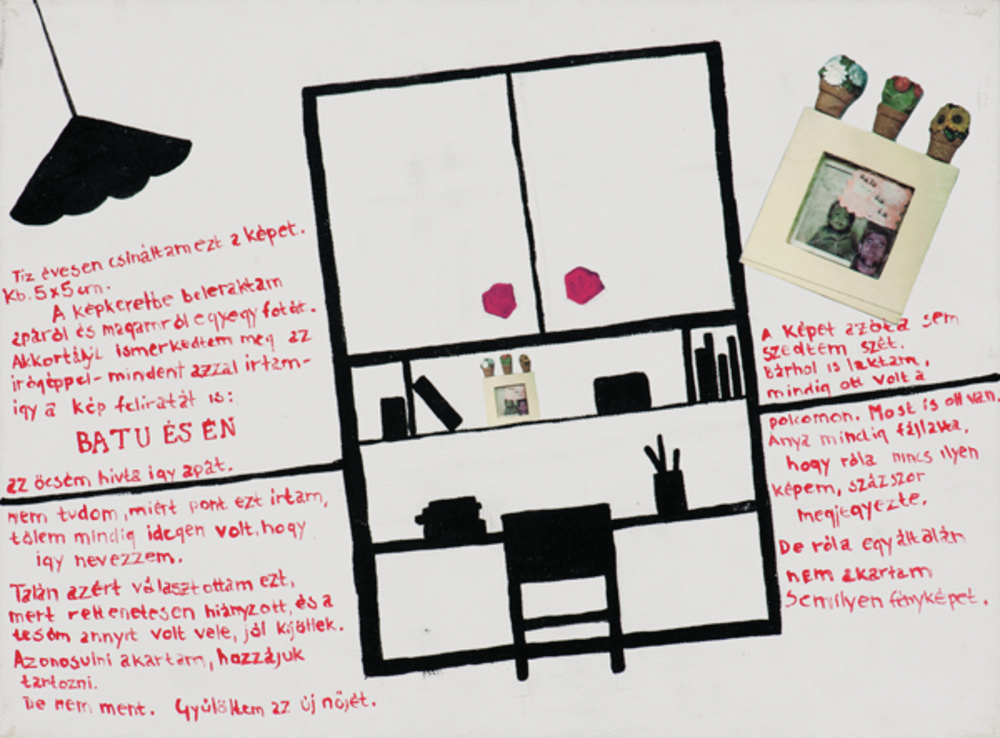 Tíz évesen csináltam ezt a képet.
Kb. 5x5 cm.
A képkeretbe beleraktam
apáról és magamról egy-egy fotót.
Akkortájt ismerkedtem meg az
írógéppel - mindent azzal írtam -
így a kép feliratát is:
BATU ÉS ÉN
az öcsém hívta így apát.
nem tudom, miért pont ezt írtam,
tőlem mindig idegen volt, hogy
így nevezzem.
Talán azért választottam ezt,
mert rettenetesen hiányzott, és a
tesóm annyit volt vele, jól kijöttek.
Azonosulni akartam, hozzájuk
tartozni.
De nem ment. Gyűlöltem az új nőjét.
A képet azóta sem
szedtem szét.
Bárhol is laktam,
mindig ott volt a
polcomon. Most is ott van.
Anya mindig fájlalta,
hogy róla nincs ilyen
képem, százszor
megjegyezte.
De róla egyáltalán
nem akartam
semilyen fényképet.